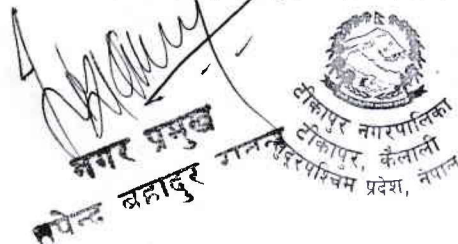 नगर प्रमुख
बहादुर
टीकापुर नगरपालिका
टीकापुर, कैलाली
सुदूरपश्चिम प्रदेश, नेपाल